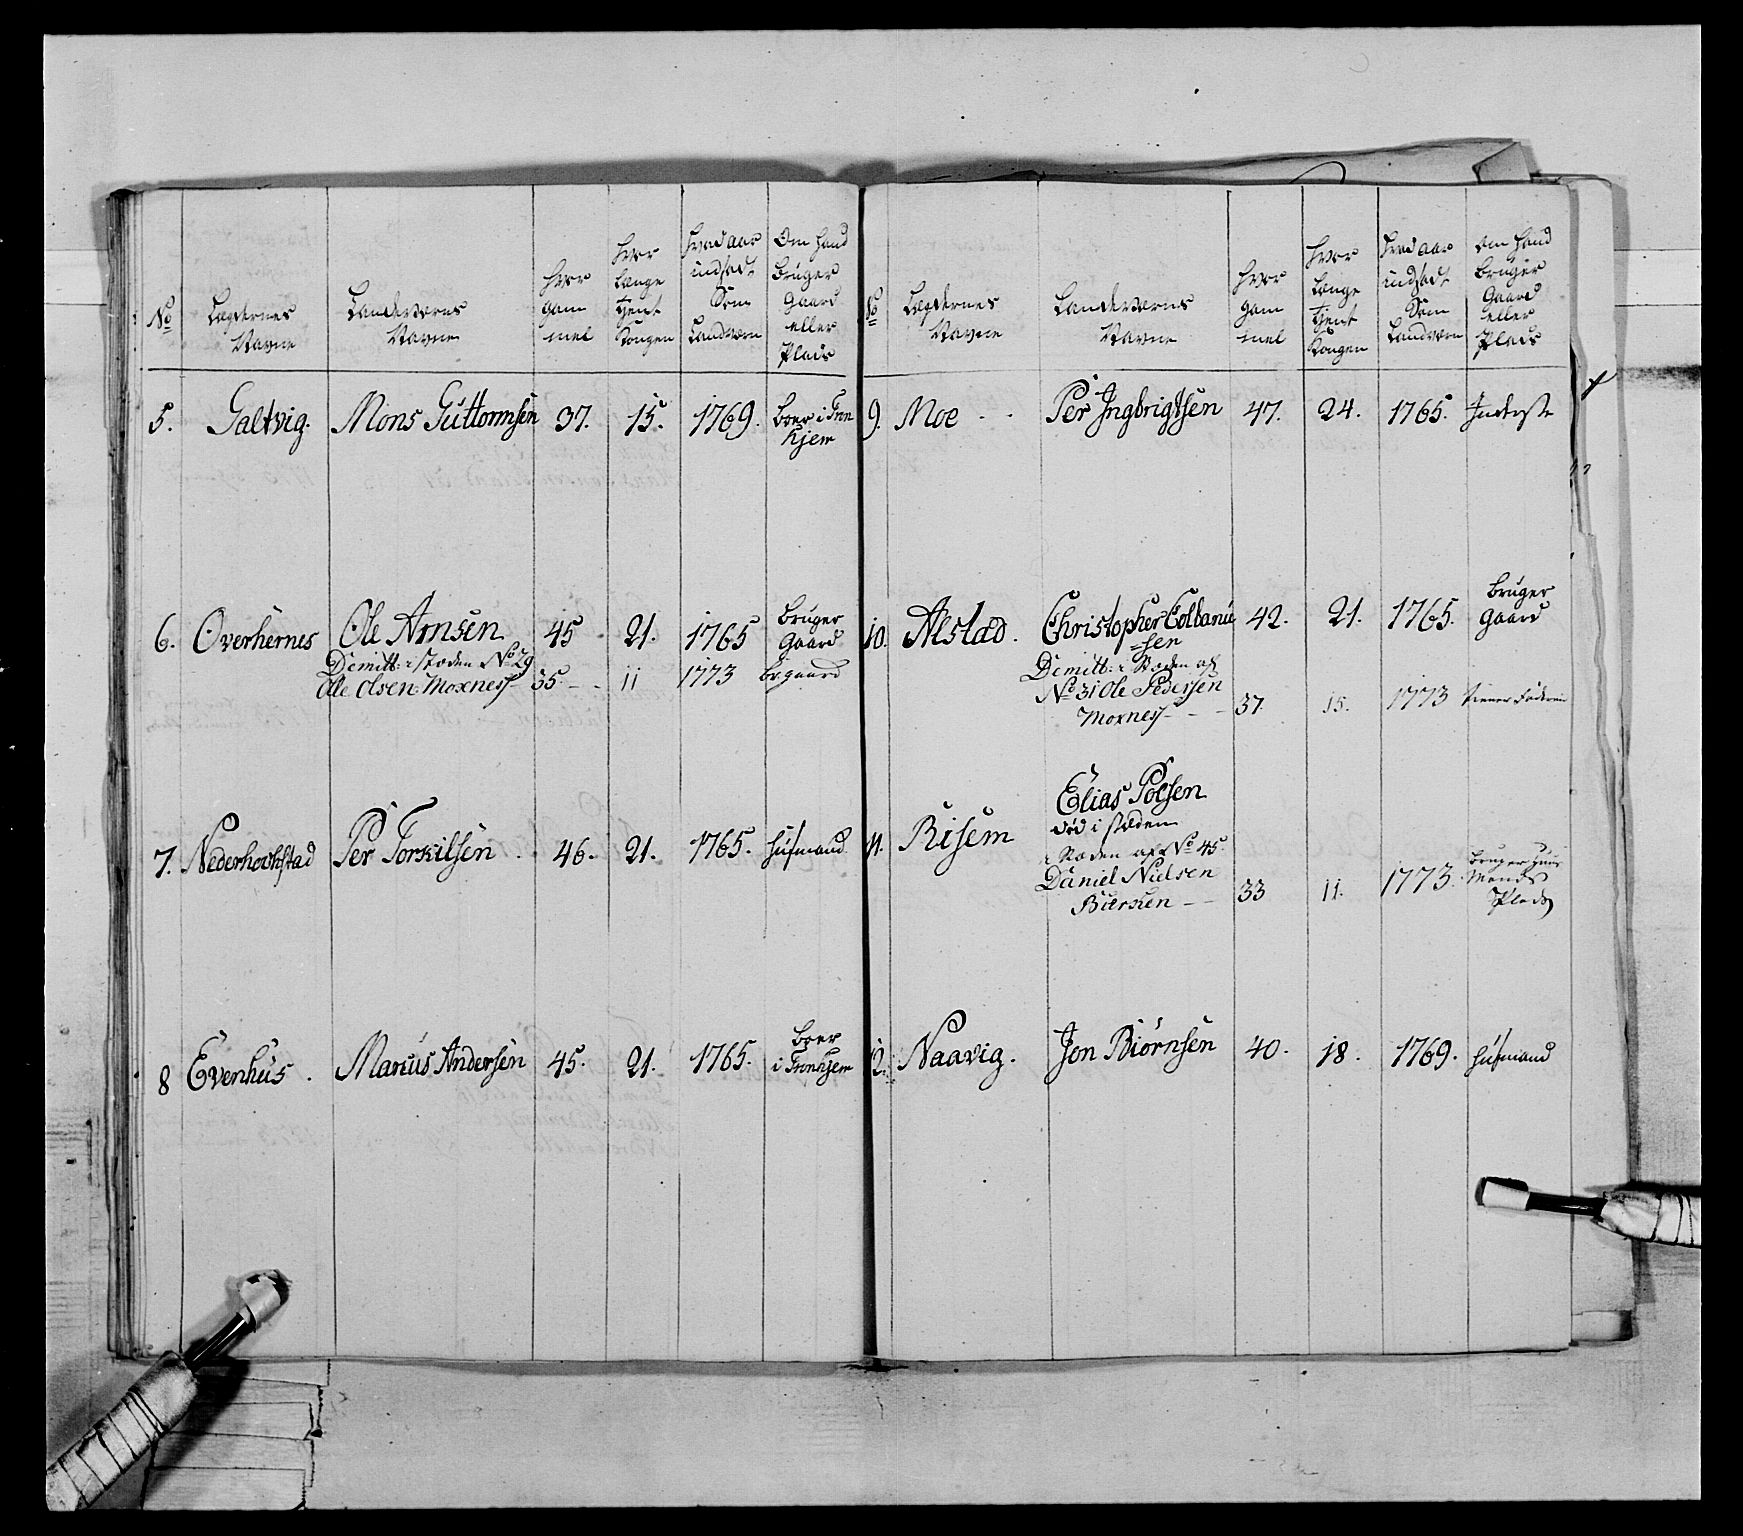 No
Lægdernes
Navne
Landeværns
Navne
Hvor
gam
mel
Hvor
længe
tjent
Kongen
Hvad aar
indsadt
Som
Landværn
Om hand
bruger
Gaard
eller
Plads
5. Galtvig. Mons Guttormsen 37. 15. 1769. boer i Tron
hjem
6. Overhernes Ole Arnsen 45 21. 1765 bruger
Gaard
Dimitt: i stæden No 29
Ole Olsen Moxness 35. 11 1773 br gaard
7. Nederhochstad Per Torkilsen 46. 21. 1765. huusmand
8 Evenhus. Marcus Andersen 45. 21. 1765. boer
i Tronhjem
No
Lægdernes
Navne
Landeværns
Navne
Hvor
gam
mel
Hvor
længe
tjent
Kongen
Hvad aar
indsadt
Som
Landværn
Om hand
bruger
Gaard
eller
Plads
9. Moe Per Ingbrigtsen 47. 24. 1765. Inderste
10. Alstad. Christopher Colbanu
=sen 42. 21. 1765. bruger
Gaard
Dimitt: i Stæden af
No 31 Ole Pedersen
Moxness 37. 15. 1773 tiener
11. Risem Elias Polsen
død i stæden
i Stæden af No 45.
Daniel Nielsen
Bierken 33 11. 1773. bruger Huus
Mands
Plads
12. Naavig. Jon Biörnsen 40. 18. 1769. huusmand